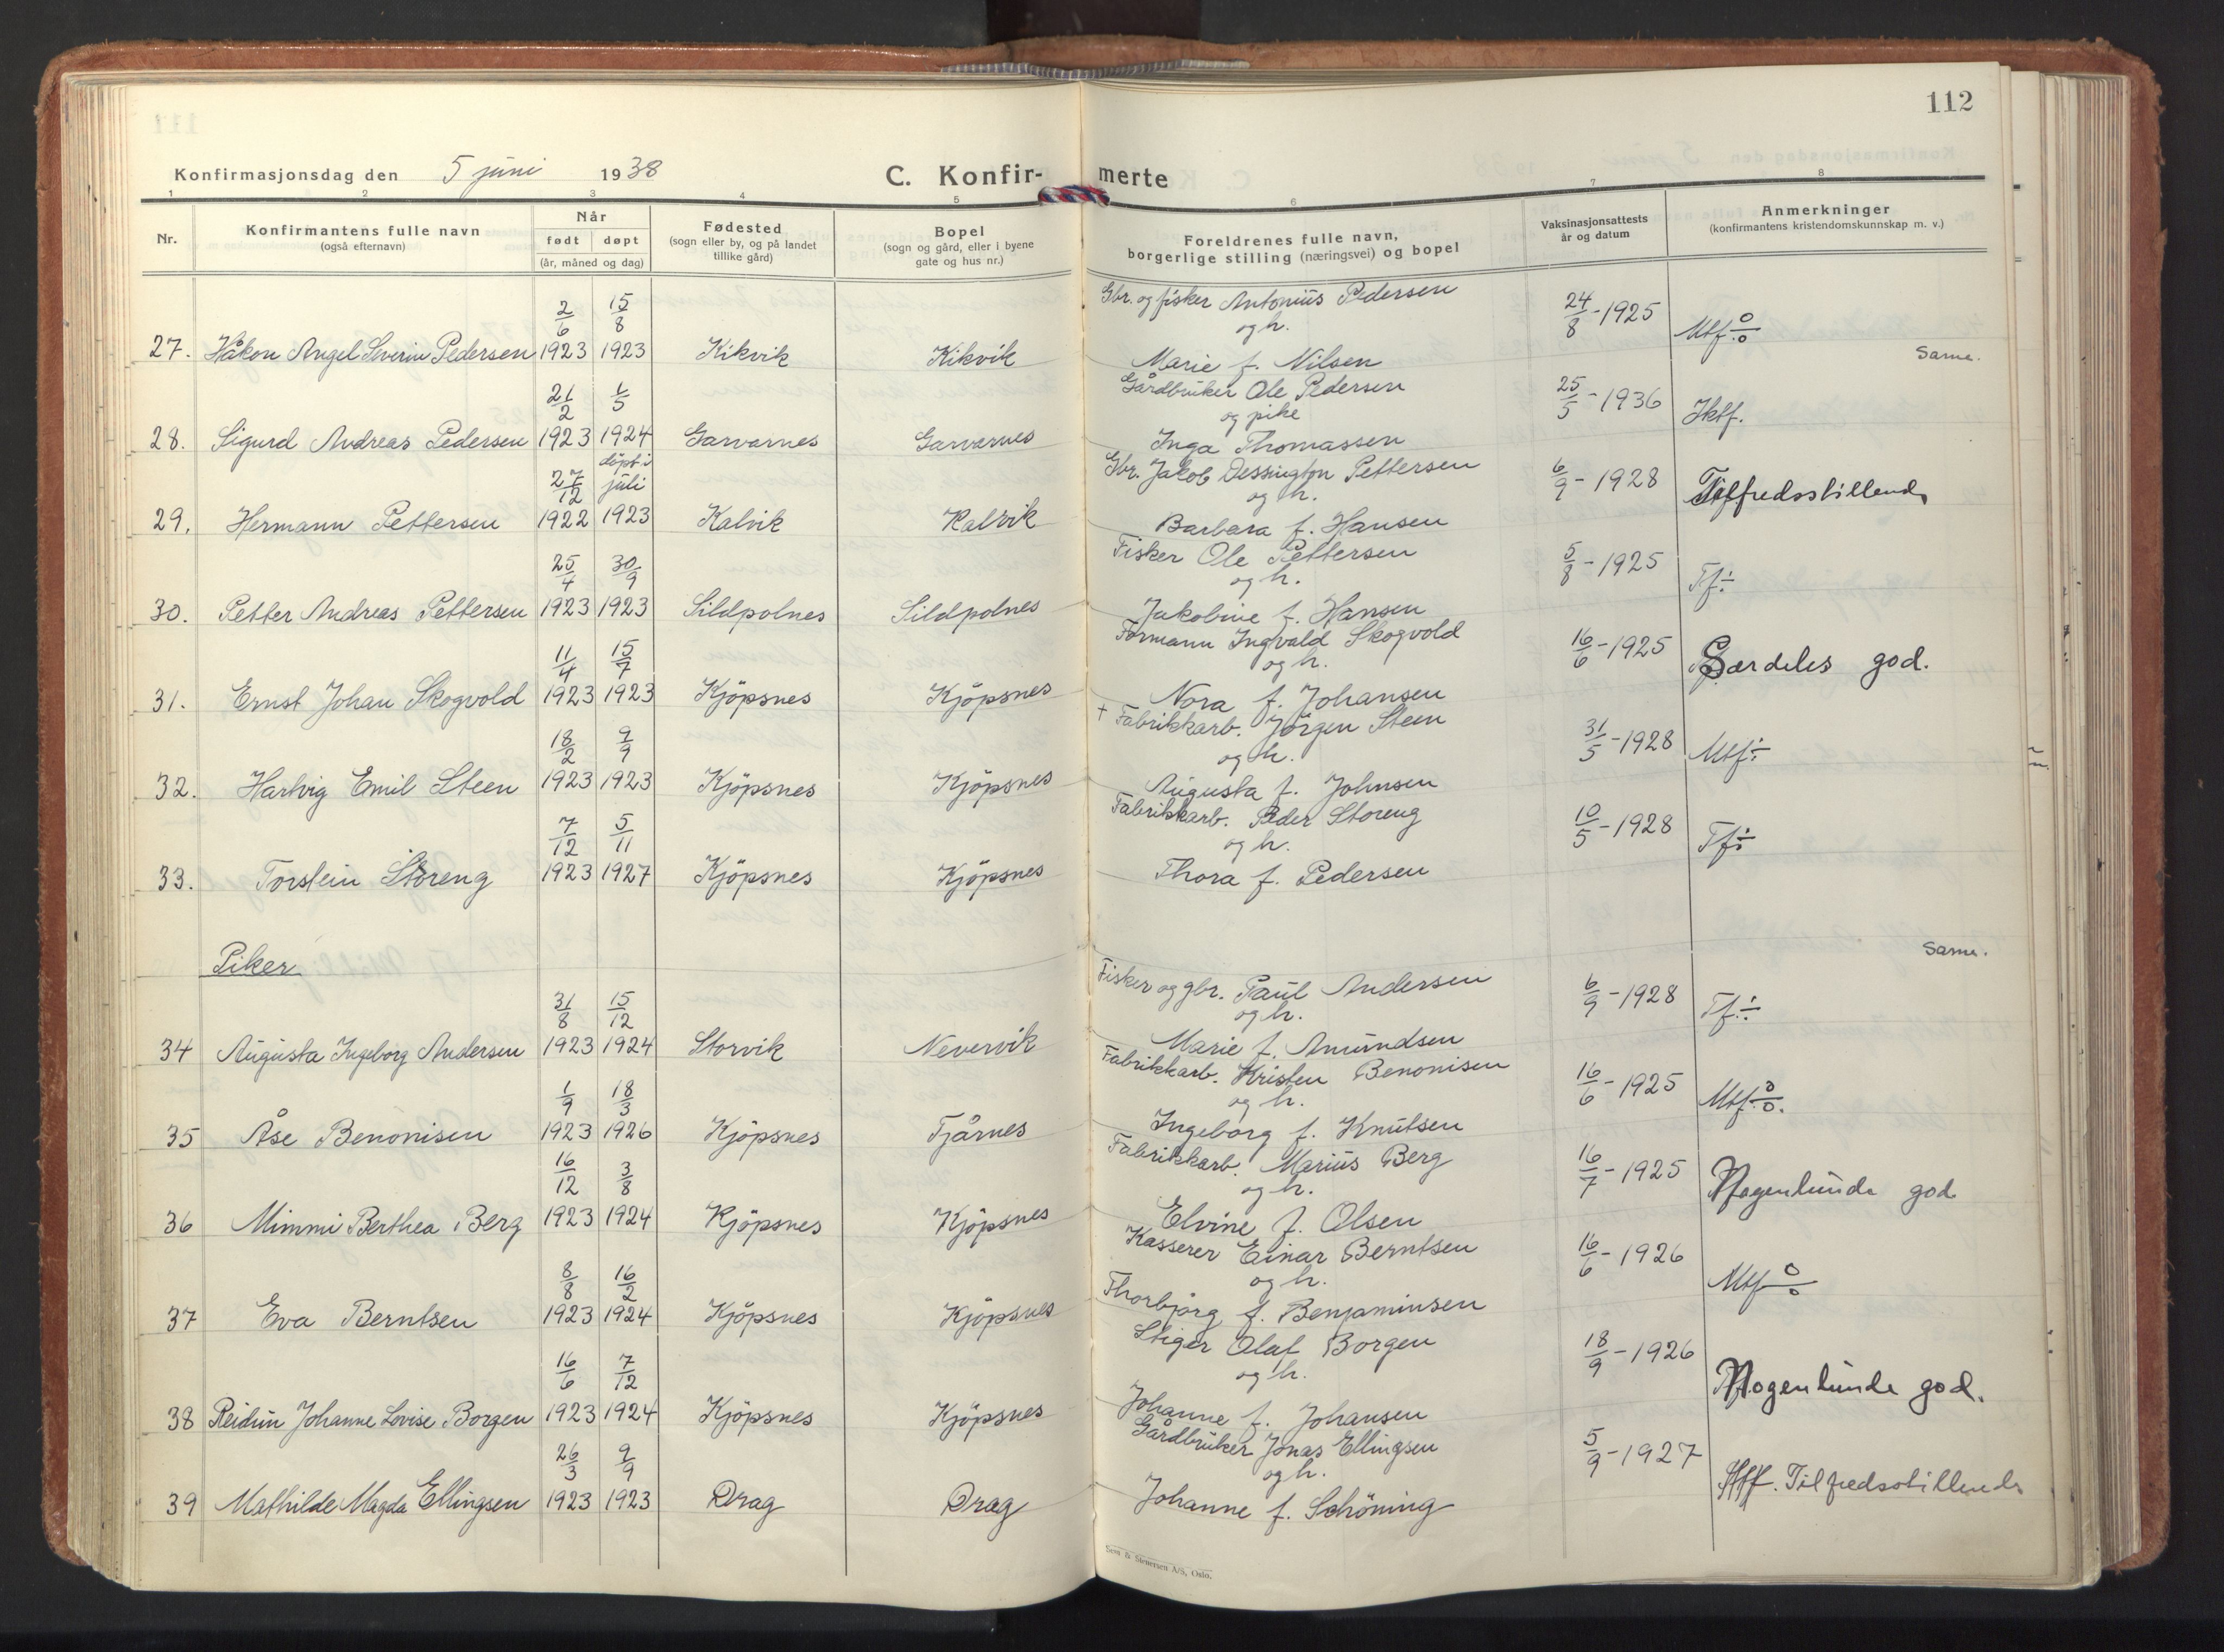 112
Konfirmasjonsdag den 5 juni 1938
C. Konfir- merte
1 2 3 4 5 6 7 8
Nr.
Konfirmantens fulle navn
(også efternavn)
Når
født døpt
(år, måned og dag)
Fødested
(sogn eller by, og på landet
tillike gård)
Bopel
(sogn og gård, eller i byene
gate og hus nr.)
Foreldrenes fulle navn,
borgerlige stilling (næringsvei) og bopel
Vaksinasjonsattests
år og datum
Anmerkninger
(konfirmantens kristendomskunnskap m. v.)
2/6 15/8 Gbr. og fisker Antonius Pedersen 24/8-1925
og h. Mtf
27. Håkon Angel Severin Pedersen 1923 1923 Kikvik Kikvik Marie f. Nilsen
Same.
21/2 1/5 Gårdbruker Ole Pedersen 25/5-1936
og pike Iktf.
28. Sigurd Andreas Pedersen 1923 1924 Garvarnes Garvarnes Inga Thomassen
døpt i
27/12 juli Gbr. Jakob Dessington Pettersen 6/9-1928
og h. Tilfredsstillende
29. Hermann Pettersen 1922 1923 Kalvik Kalvik Barbara f. Hansen
25/4 30/9 Fisker Ole Pettersen 5/8-1925
og h. Tf÷
30. Petter Andreas Pettersen 1923 1923 Sildpolnes Sildpolnes Jakobine f. Hansen
11/4 15/7 Formann Ingvald Skogvold 16/6-1925
og h. Særdeles god.
31. Ernst Johan Skogvold 1923 1923 Kjöpsnes Kjöpsnes Nora f. Johansen
18/2 9/9 + Fabrikkarb. Jörgen Steen 31/5-1928
og h. Mtf÷
32. Hartvig Emil Steen 1923 1923 Kjöpsnes Kjöpsnes Augusta f. Johnsen
7/12 5/11 Fabrikkarb. Peder Storeng 10/5-1928
og h. Tf÷
33. Torstein Storeng 1923 1927 Kjöpsnes Kjöpsnes Thora f. Pedersen
Piker
Same.
31/8 15/12 Fisker og gbr. Paul Andersen 6/9-1928
og h. Tf÷
34 Augusta Ingeborg Andersen 1923 1924 Storvik Nevervik Marie f. Amundsen
1/9 18/3 Fabrikkarb. Kristen Benonisen 16/6-1925
og h. Mtf
35 Åse Benonisen 1923 1926 Kjöpsnes Tjårnes Ingeborg f. Knutsen
16/12 3/8 Fabrikkarb. Marius Berg 16/7-1925
og h. Nogenlunde god
36 Mimmi Berthea Berg 1923 1924 Kjöpsnes Kjöpsnes Elvine f. Olsen
8/8 16/2 Kasserer Einar Berntsen 16/6-1926
og h. Mtf
37 Eva Berntsen 1923 1924 Kjöpsnes Kjöpsnes Thorbjörg f. Benjaminsen
16/6 7/12 Stiger Olaf Borgen 18/9-1926
og h. Nogenlunde god.
38 Reidun Johanne Lovise Borgen 1923 1924 Kjöpsnes Kjöpsnes Johanne f. Johansen
26/3 9/9 Gårdbruker Jonas Ellingsen 5/9-1927
og h. Tilfredsstillende
39 Mathilde Magda Ellingsen 1923 1923 Drag Drag Johanne f. Schöning
Sem & Stenersen A/S, Oslo.